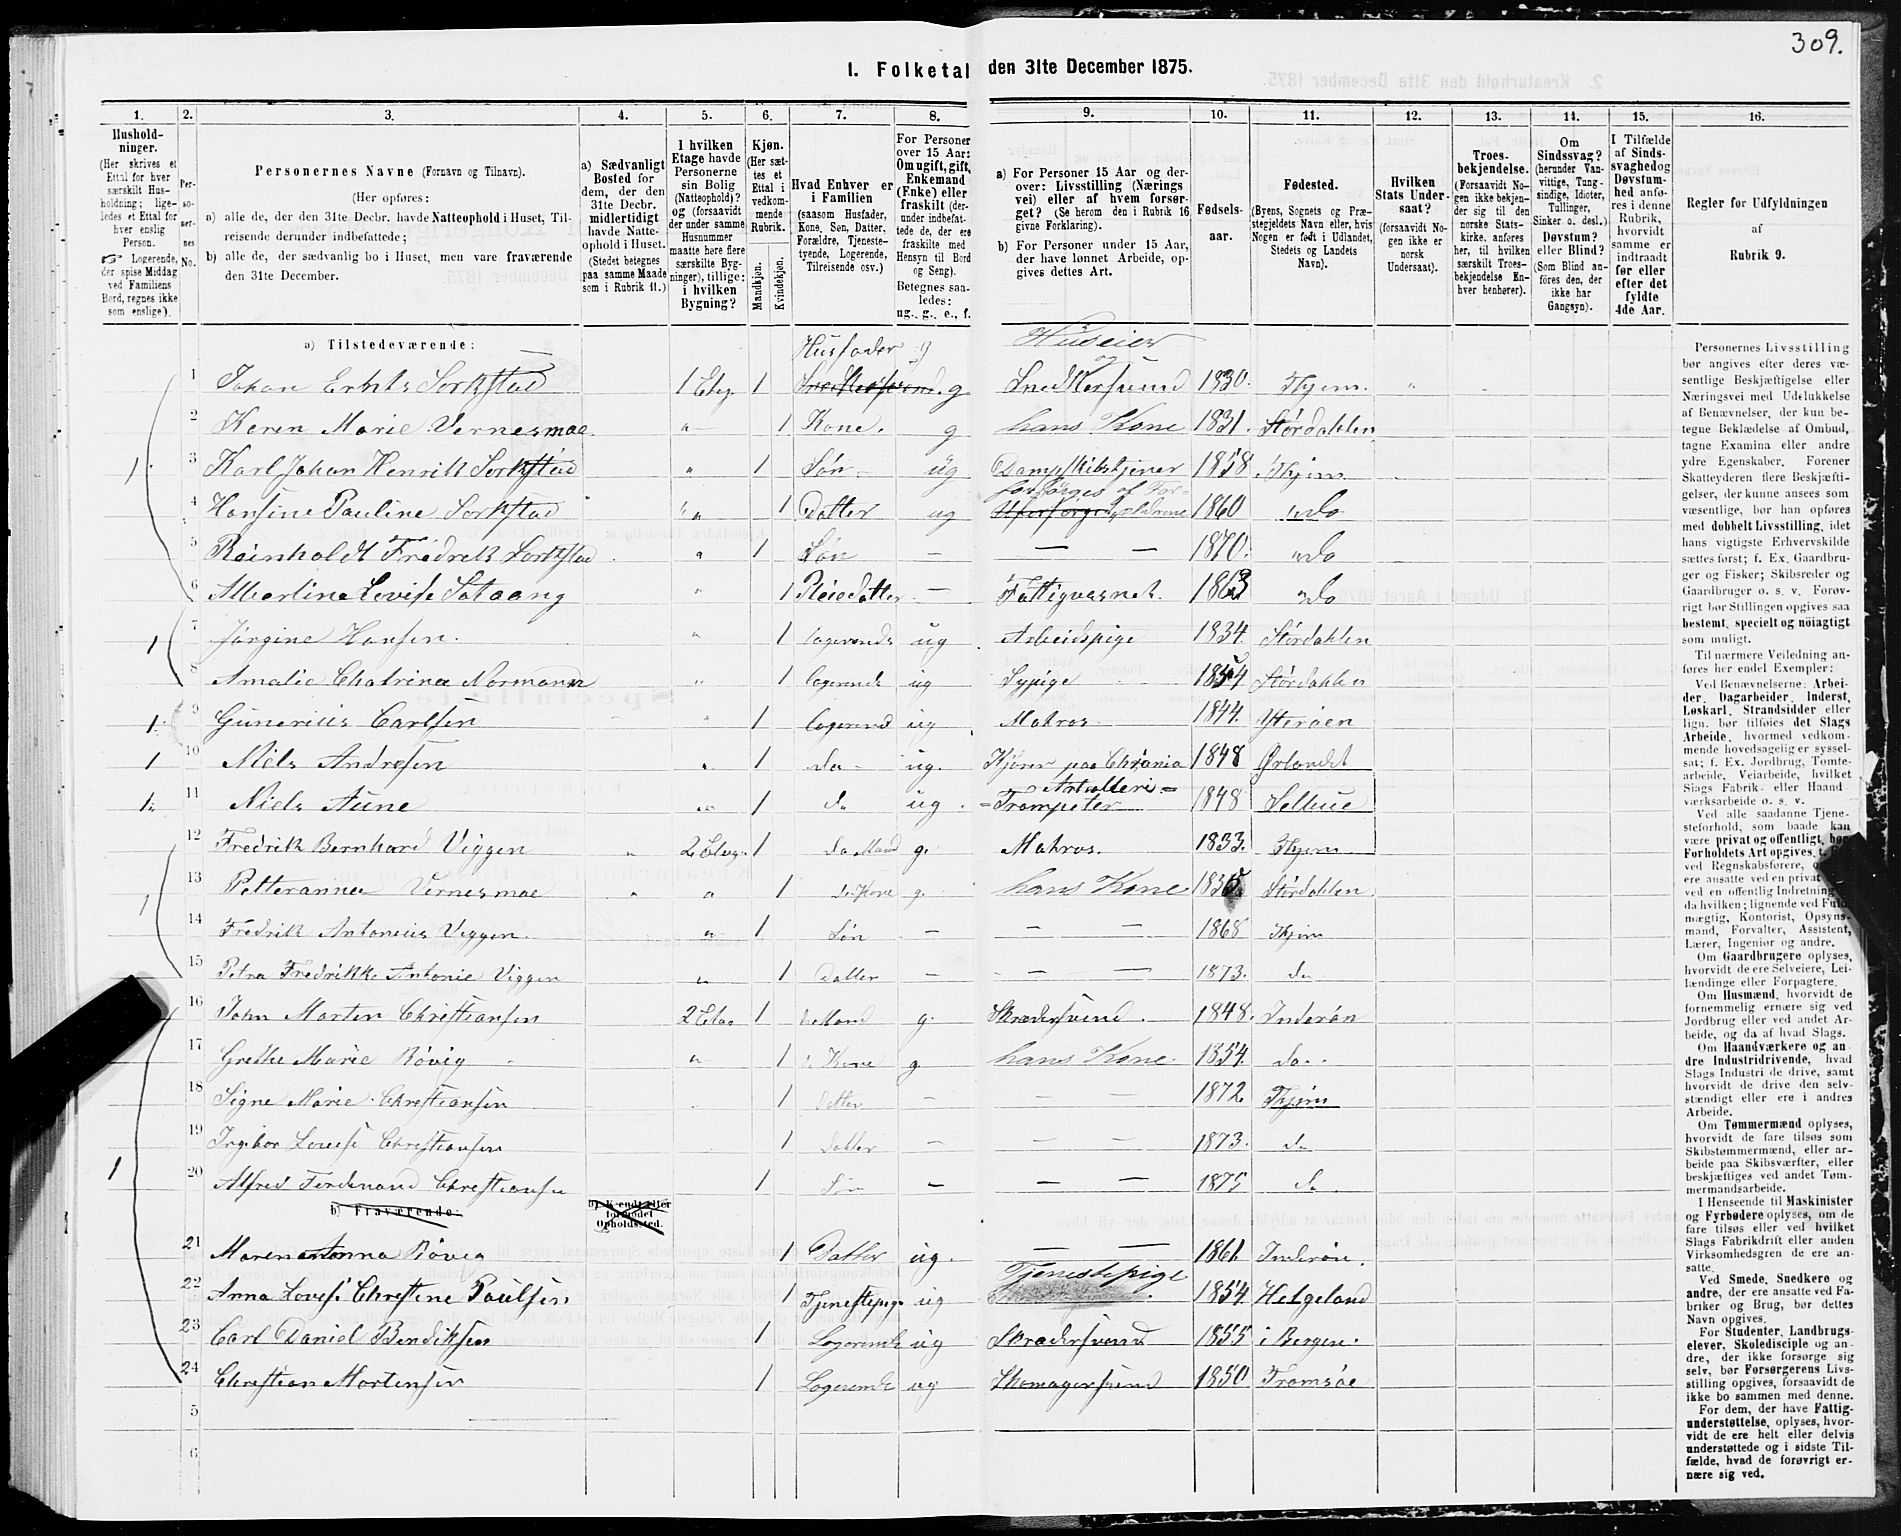 309.
1. Folketal den 31te December 1875.
1. 2. 3. 4. 5. 6. 7. 8. 9. 10. 11. 12. 13. 14. 15. 16.
Husholdninger. (Her skrives et Ettal for hver særskilt Husholdning; ligeledes et Ettal for hver enslig Person. Logerende, der spise Middag ved Familiens Bord, regnes ikke som enslige).
Personernes No.
Personernes Navne (Fornavn og Tilnavn).
(Her opføres:
a) alle de, der den 31te Decbr. havde Natteophold i Huset, Tilreisende derunder indbefattede;
b) alle de, der sædvanlig bo i Huset, men vare fraværende den 31te December.
a) Sædvanligt Bosted for dem, der den 31te Decbr. midlertidigt havde Natteophold i Huset. (Stedet betegnes paa samme Maade som i Rubrik 11.)
I hvilken Etage havde Personerne sin Bolig (Natteophold)? og (forsaavidt der under samme Husnummer maatte høre flere særskilte Bygninger), tillige: i hvilken Bygning?
Kjøn. (Her sættes et Ettal i vedkommende Rubrik.
Mandkjøn. Kvindekjøn.
Hvad Enhver er i Familien (saasom Husfader, Kone, Søn, Datter, Forældre, Tjenestetyende, Logerende, Tilreisende osv.)
For Personer over 15 Aar: Om ugift, gift, Enkemand (Enke) eller fraskilt (derunder indbefattede de, der ere fraskilte med Hensyn til Bord og Seng). Betegnes saaledes: ug., g., e., f.
a) For Personer 15 Aar og derover: Livsstilling (Næringsvei) eller af hvem forsørget? (Se herom den i Rubrik 16 givne Forklaring).
b) For Personer under 15 Aar, der have lønnet Arbeide, opgives dettes Art.
Fødselsaar.
Fødested. (Byens, Sognets og Præstegjeldets Navn eller, hvis Nogen er født i Udlandet, Stedets og Landets Navn).
Hvilken Stats Undersaat? (forsaavidt Nogen ikke er norsk Undersaat).
Troesbekjendelse. (Forsaavidt Nogen ikke bekjender sig til den norske Statskirke, anføres her, til hvilken særskilt Troesbekjendelse Enhver henhører).
Om Sindssvag? (herunder Vanvittige, Tungsindige, Idioter, Tullinger, Sinker o. desl.) Døvstum? eller Blind? (Som Blind anføres den, der ikke har Gangsyn).
I Tilfælde af Sindssvaghed og Døvstumhed anføres i denne Rubrik, hvorvidt samme er indtraadt før eller efter det fyldte 4de Aar.
Regler for Udfyldningen af Rubrik 9.
a) Tilstedeværende: Husfader g Huseier og
1 Johan Erhts Sorkstad 1 Etg. 1 Snedkersvend g Snedkersvend 1830. Thjem.
2 Karen Marie Vernesmoe 1 Kone. g hans Kone 1831. Størdahlen
1. 3 Karl Johan Henrik Sorkstad 1 Søn ug Dampskibstjener 1858. Thjem.
forsørges af For-
4 Hansine Pauline Sorkstad 1 Datter ug Uforsørget ældrene 1860 do
5 Reinholdt Fredrik Sorkstad 1 Søn — — — 1870. do
6 Albertine Lovise Sataang 1 Pleiedatter — Fattigvæsnet. 1863 do
1 7 Jørgine Hansen. 1 logerende ug Arbeidspige 1834. Størdahlen
8 Amalie Chatrine Normann 1 logerende ug Sypige 1854 Størdahlen
1. 9 Gunerius Carlsen 1 logerend ug Matros 1844. Ytterøen
1 10 Niels Andresen 1 do ug. Kjører paa Chrania 1848 Ørlandet
Artolleri=
1. 11 Niels Aune 1 do ug. =Trompeter 1848 Selbue
12 Fredrik Bernhard Viggen 2 Etag. 1 do Mand g. Matros. 1833. Thjem
1 13 Petteranna Vernesmoe 1 do Kone g. hans Kone 1835 Størdahlen
14 Fredrik Antonius Viggen. 1 Søn — — — 1868 Thjem
15 Petra Fredrikke Antonie Viggen 1 Datter — — — 1873. do
16 John Morten Christiansen 2 Etag 1 do Mand g. Skrædersvend. 1848. Inderøn
17 Grethe Marie Røvig 1 Kone g. hans Kone. 1854. do.
18 Signe Marie Christiansen 1 Datter — — — 1872. Thjem
19 Ingebor Lovise Christiansen 1 Datter — — — 1873. do
1 20 Alfred Ferdinand Christiansen 1 Søn — — — 1875 do
b) Fraværende: b) Kjendt eller formodet Opholdssted.
21 Maren Anna Røvig 1 Datter ug. — — 1861. Inderøn.
22 Anna Lovise Christine Paulsen 1 Tjenestepige ug Tjenestepige 1854. Helgeland
23 Carl Daniel Bendiksen 1 Logerende ug Skrædersvend 1855 i Bergen.
24 Christian Mortensen 1 Logerende ug Skomagersvend 1850 Tromsøe
5
6
Personernes Livsstilling bør angives efter deres væsentlige Beskjæftigelse eller Næringsvei med Udelukkelse af Benævnelser, der kun betegne Beklædelse af Ombud, tagne Examina eller andre ydre Egenskaber. Forener Skatteyderen flere Beskjæftigelser, der kunne ansees som væsentlige, bør han opføres med dobbelt Livsstilling, idet hans vigtigste Erhvervskilde sættes først; f. Ex. Gaardbruger og Fisker; Skibsreder og Gaardbruger o. s. v. Forøvrigt bør Stillingen opgives saa bestemt, specielt og nöiagtigt som muligt.
Til nærmere Veiledning anføres her endel Exempler:
Ved Benævnelserne: Arbeider, Dagarbeider, Inderst, Løskarl, Strandsidder eller lign. bør tilføies det Slags Arbeide, hvormed vedkommende hovedsagelig er sysselsat; f. Ex. Jordbrug, Tomtearbeide, Veiarbeide, hvilket Slags Fabrik- eller Haandværksarbeide o. s. v.
Ved alle saadanne Tjenesteforhold, som baade kan være privat og offentligt, bør Forholdets Art opgives,
ved Regnskabsførere,
ere ansatte ved en privat
ved en offentlig Indretning
da hvilken; lignende ved Fuldmægtig, Kontorist, Opsynsmand, Forvalter, Assistent, Lærer, Ingeniør og andre.
Om Gaardbrugere oplyses, hvorvidt de ere Selveiere, Leilændinge eller Forpagtere.
Om Husmænd, hvorvidt de fornemmelig ernære sig ved Jordbrug eller ved andet Arbeide, og da af hvad Slags.
Om Haandværkere og andre Industridrivende, hvad Slags Industri de drive, samt hvorvidt de drive den selvstændigt eller ere i andres Arbeide.
Om Tømmermænd oplyses, hvorvidt de fare tilsøs som Skibstømmermænd, eller arbeide paa Skibsværfter, eller beskjæftiges ved andet Tømmermandsarbeide.
I Henseende til Maskinister og Fyrbødere oplyses, om de fare tilsøs eller ved hvilket Slags Fabrikdrift eller anden Virksomhedsgren de ere ansatte.
Ved Smede, Snedkere og andre, der ere ansatte ved Fabriker og Brug, bør dettes Navn opgives.
For Studenter, Landbrugselever, Skoledisciple og andre, der ikke forsørge sig selv, bør Forsørgerens Livsstilling opgives, forsaavidt de ikke bo sammen med denne.
For dem, der have Fattigunderstøttelse, oplyses, hvorvidt de ere helt eller delvis understøttede og i sidste Tilfælde, hvad de forøvrigt ernære sig ved.